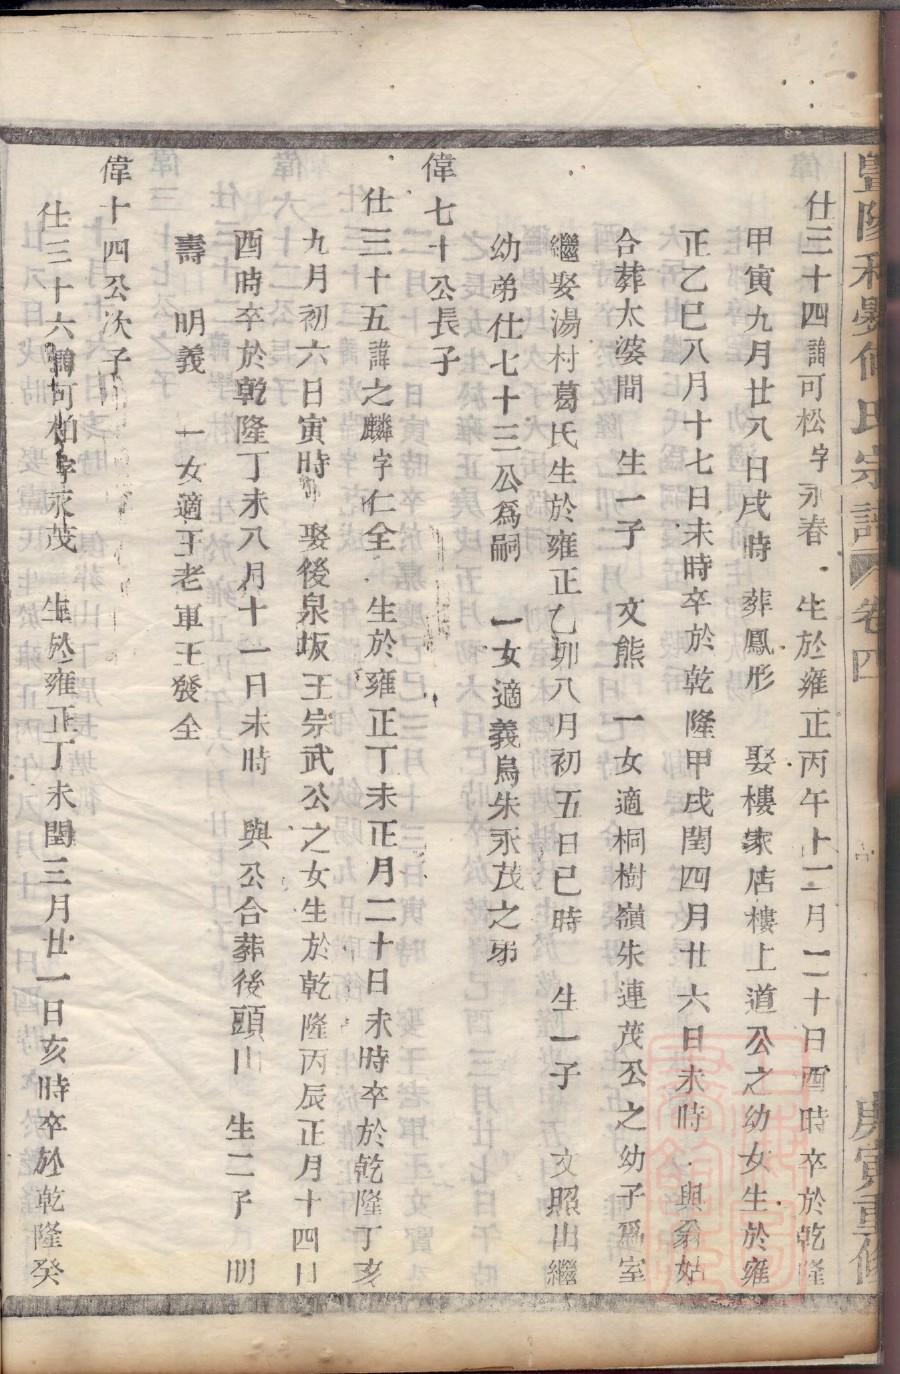 暨陽和嶴何氏宗譜 卷四 庚寅重修
仕三十四諱可松字永春 生於雍正丙午十二月二十日酉時卒於乾隆
甲寅九月廿八日戌時 葬鳳形 娶樓家店樓上道公之幼女生於雍
正乙巳八月十七日未時卒於乾隆甲戌閏四月廿六日未時 與翁姑
合葬太婆間 生一子 文熊 一女適桐樹嶺朱連茂公之幼子爲室
繼娶湯村葛氏生於雍正乙卯八月初五日巳時 生一子 文照出繼
幼弟仕七十三公爲嗣 一女適義烏朱永茂之弟
偉七十公長子
仕三十五諱之麟字仁全 生於雍正丁未正月二十日未時卒於乾隆丁亥
九月初六日寅時 娶後泉坂王宗武公之女生於乾隆丙辰正月十四日
酉時卒於乾隆丁未八月十一日未時 與公合葬後頭山 生二子 明
壽 明義 一女適王老軍王發全
偉十四公次子
仕三十六諱可柏字永茂 生於雍正丁未閏三月廿一日亥時卒於乾隆癸